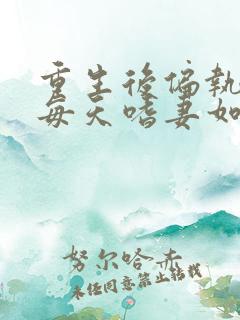 重生後偏執
每天嗜妻如
努尔哈赤
未经同意禁止转载